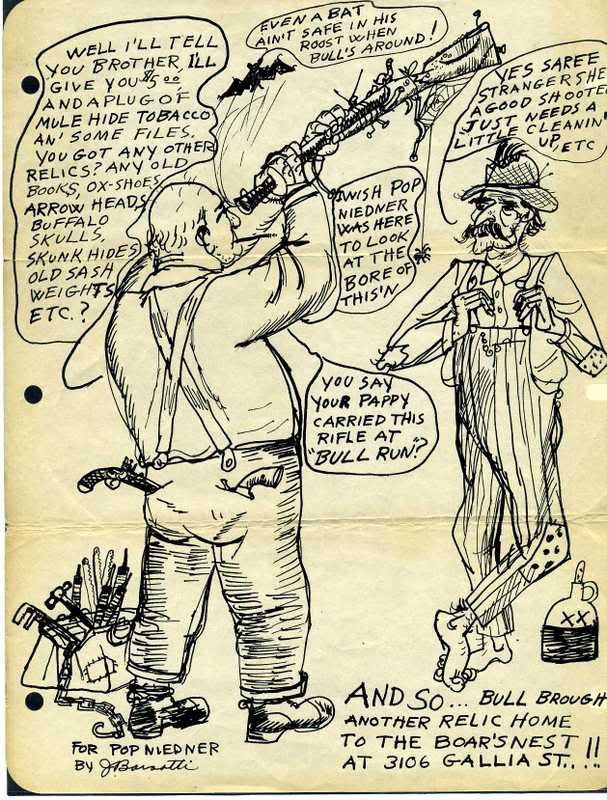 EVEN A BAT
AIN'T SAFE IN HIS
ROOST WHEN
BULL'S AROUND!
WELL I'LL TELL
YOU BROTHER, I'LL
GIVE YOU $5.00
AND A PLUG OF
MULE HIDE TOBACCO
AN' SOME FILES.
YOU GOT ANY OTHER
RELICS? ANY OLD
BOOKS, OX-SHOES,
ARROW HEADS,
BUFFALO
SKULLS,
SKUNK HIDES
OLD SASH
WEIGHTS
ETC.?
YES SAREE
STRANGER SHE
A GOOD SHOOTE
JUST NEEDS A
LITTLE CLEANIN'
UP, ETC
I WISH POP
NIEDNER
WAS HERE
TO LOOK
AT THE
BORE OF
THIS'N
YOU SAY
YOUR PAPPY
CARRIED THIS
RIFLE AT
"BULL RUN"?
XX
AND SO... BULL BROUGH
ANOTHER RELIC HOME
TO THE BOAR'S NEST
AT 3106 GALLIA ST..!!
FOR POP NIEDNER
BY J. Barsotti